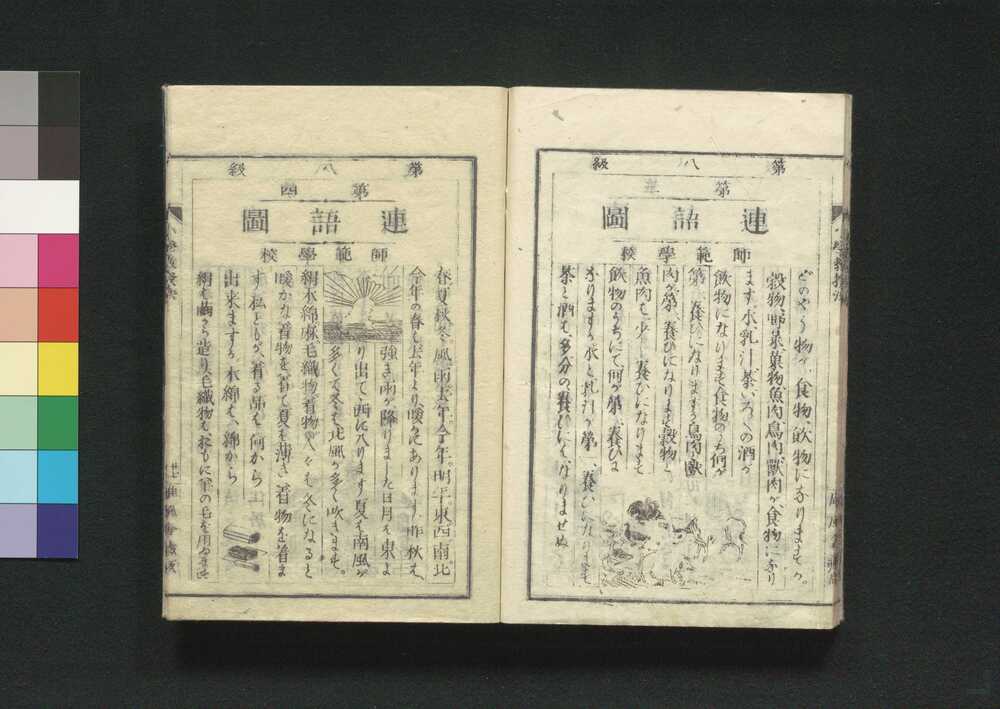 第八級
第三
連語圖
師範學校
どのやうな物が、食物、飲物になりますか。
穀物、野菜、菓物、魚肉、鳥肉、獸肉が食物になり
ます、水、乳汁、茶、いろ〳〵の酒が
飲物になります、食物のうち何が
第一、養ひになりますか、鳥肉、獸
肉が第一、養ひになります、穀物と
魚肉も、少し、養ひになります
飲物のうちにて、何が第一、養ひに
なりますか、水と乳汁が第一、養ひになります
茶と酒も、多分の養ひにも、なりませぬ
第八級
第四
連語圖
師範學校
春、夏、秋、冬、風、雨、去年。今年。明年。東西南北。
今年の春も、去年より、暖かであります、昨秋は、
強き雨が降りました、日月も、東よ
り出て、西に入ります、夏も、南風が
多くて、冬も、北風が多く吹きます。
絹、木綿、麻、毛織物、着物、人々も、冬になると
暖かな着物を着て、夏も、薄き着物を着ま
す、私どもが、着る品も、何から
出来まするか、木綿は、綿から
絹は、繭から造り、毛織物は、おもに、羊の毛を用ゐます